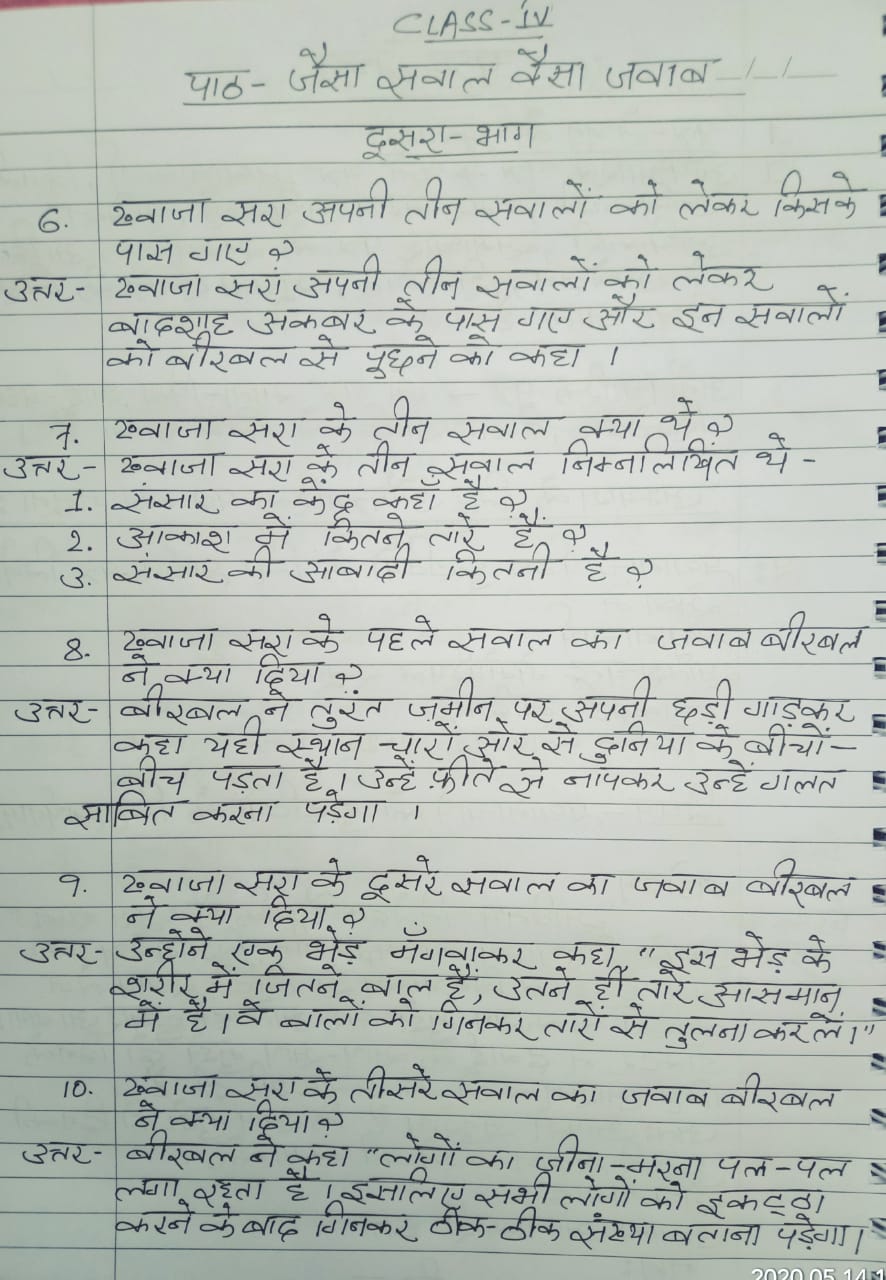 CLASS-IV
पाठ- जैसा सवाल वैसा जवाब
दूसरा-भाग
6. ख्वाजा सरा अपनी तीन सवालों को लेकर किसके
पास गाए ?
उत्तर- ख्वाजा सरा अपनी तीन सवालों को लेकर
बादशाह अकबर के पास गए और इन सवालों
को बीरबल से पुछने को कहा ।
7. ख्वाजा सरा के तीन सवाल क्या थे ?
उत्तर- ख्वाजा सरा के तीन सवाल निम्नलिखित थे -
1. संसार का केंद्र कहाँ है ?
2. आकाश में कितने तारे हैं ?
3. संसार की आबादी कितनी है ?
8. ख्वाजा सरा के पहले सवाल का जवाब बीरबल
ने क्या दिया ?
उत्तर- बीरबल ने तुरंत ज़मीन पर अपनी छड़ी गाड़कर
कहा यही स्थान चारों ओर से दुनिया के बीचों-
बीच पड़ता है। उन्हें फ़ीते से नापकर उन्हें गलत
साबित करना पड़ेगा ।
9. ख्वाजा सरा के दूसरे सवाल का जवाब बीरबल
ने क्या दिया ?
उत्तर- उन्होंने एक भेड़ मँगवाकर कहा "इस भेड़ के
शरीर में जितने बाल हैं, उतने ही तारे आसमान
में है। वे बालों को गिनकर तारों से तुलना कर लें।"
10. ख्वाजा सरा के तीसरे सवाल का जवाब बीरबल
ने क्या दिया ?
उत्तर- बीरबल ने कहा "लोगों का जीना-मरना पल-पल
लगा रहता है। इसलिए सभी लोगों को इकट्ठा
करने के बाद गिनकर ठीक-ठीक संख्या बताना पड़ेगा।
2020.05.14